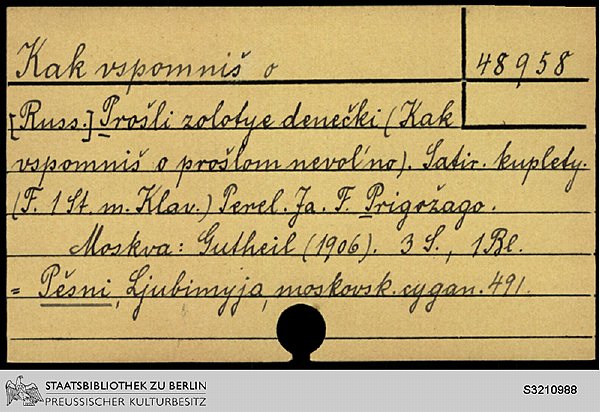 Kak vspomniš o 48958
[Russ.] Prošli zolotye denečki (Kak
vspomniš o prošlom nevol'no). Satir. kuplety.
(F. 1 St. m. Klav.) Perel. Ja. F. Prigožago.
Moskva: Gutheil (1906). 3 S., 1 Bl.
= Pěsni, Ljubimyja, moskovsk. cygan. 491.
STAATSBIBLIOTHEK ZU BERLIN
PREUSSISCHER KULTURBESITZ
S3210988